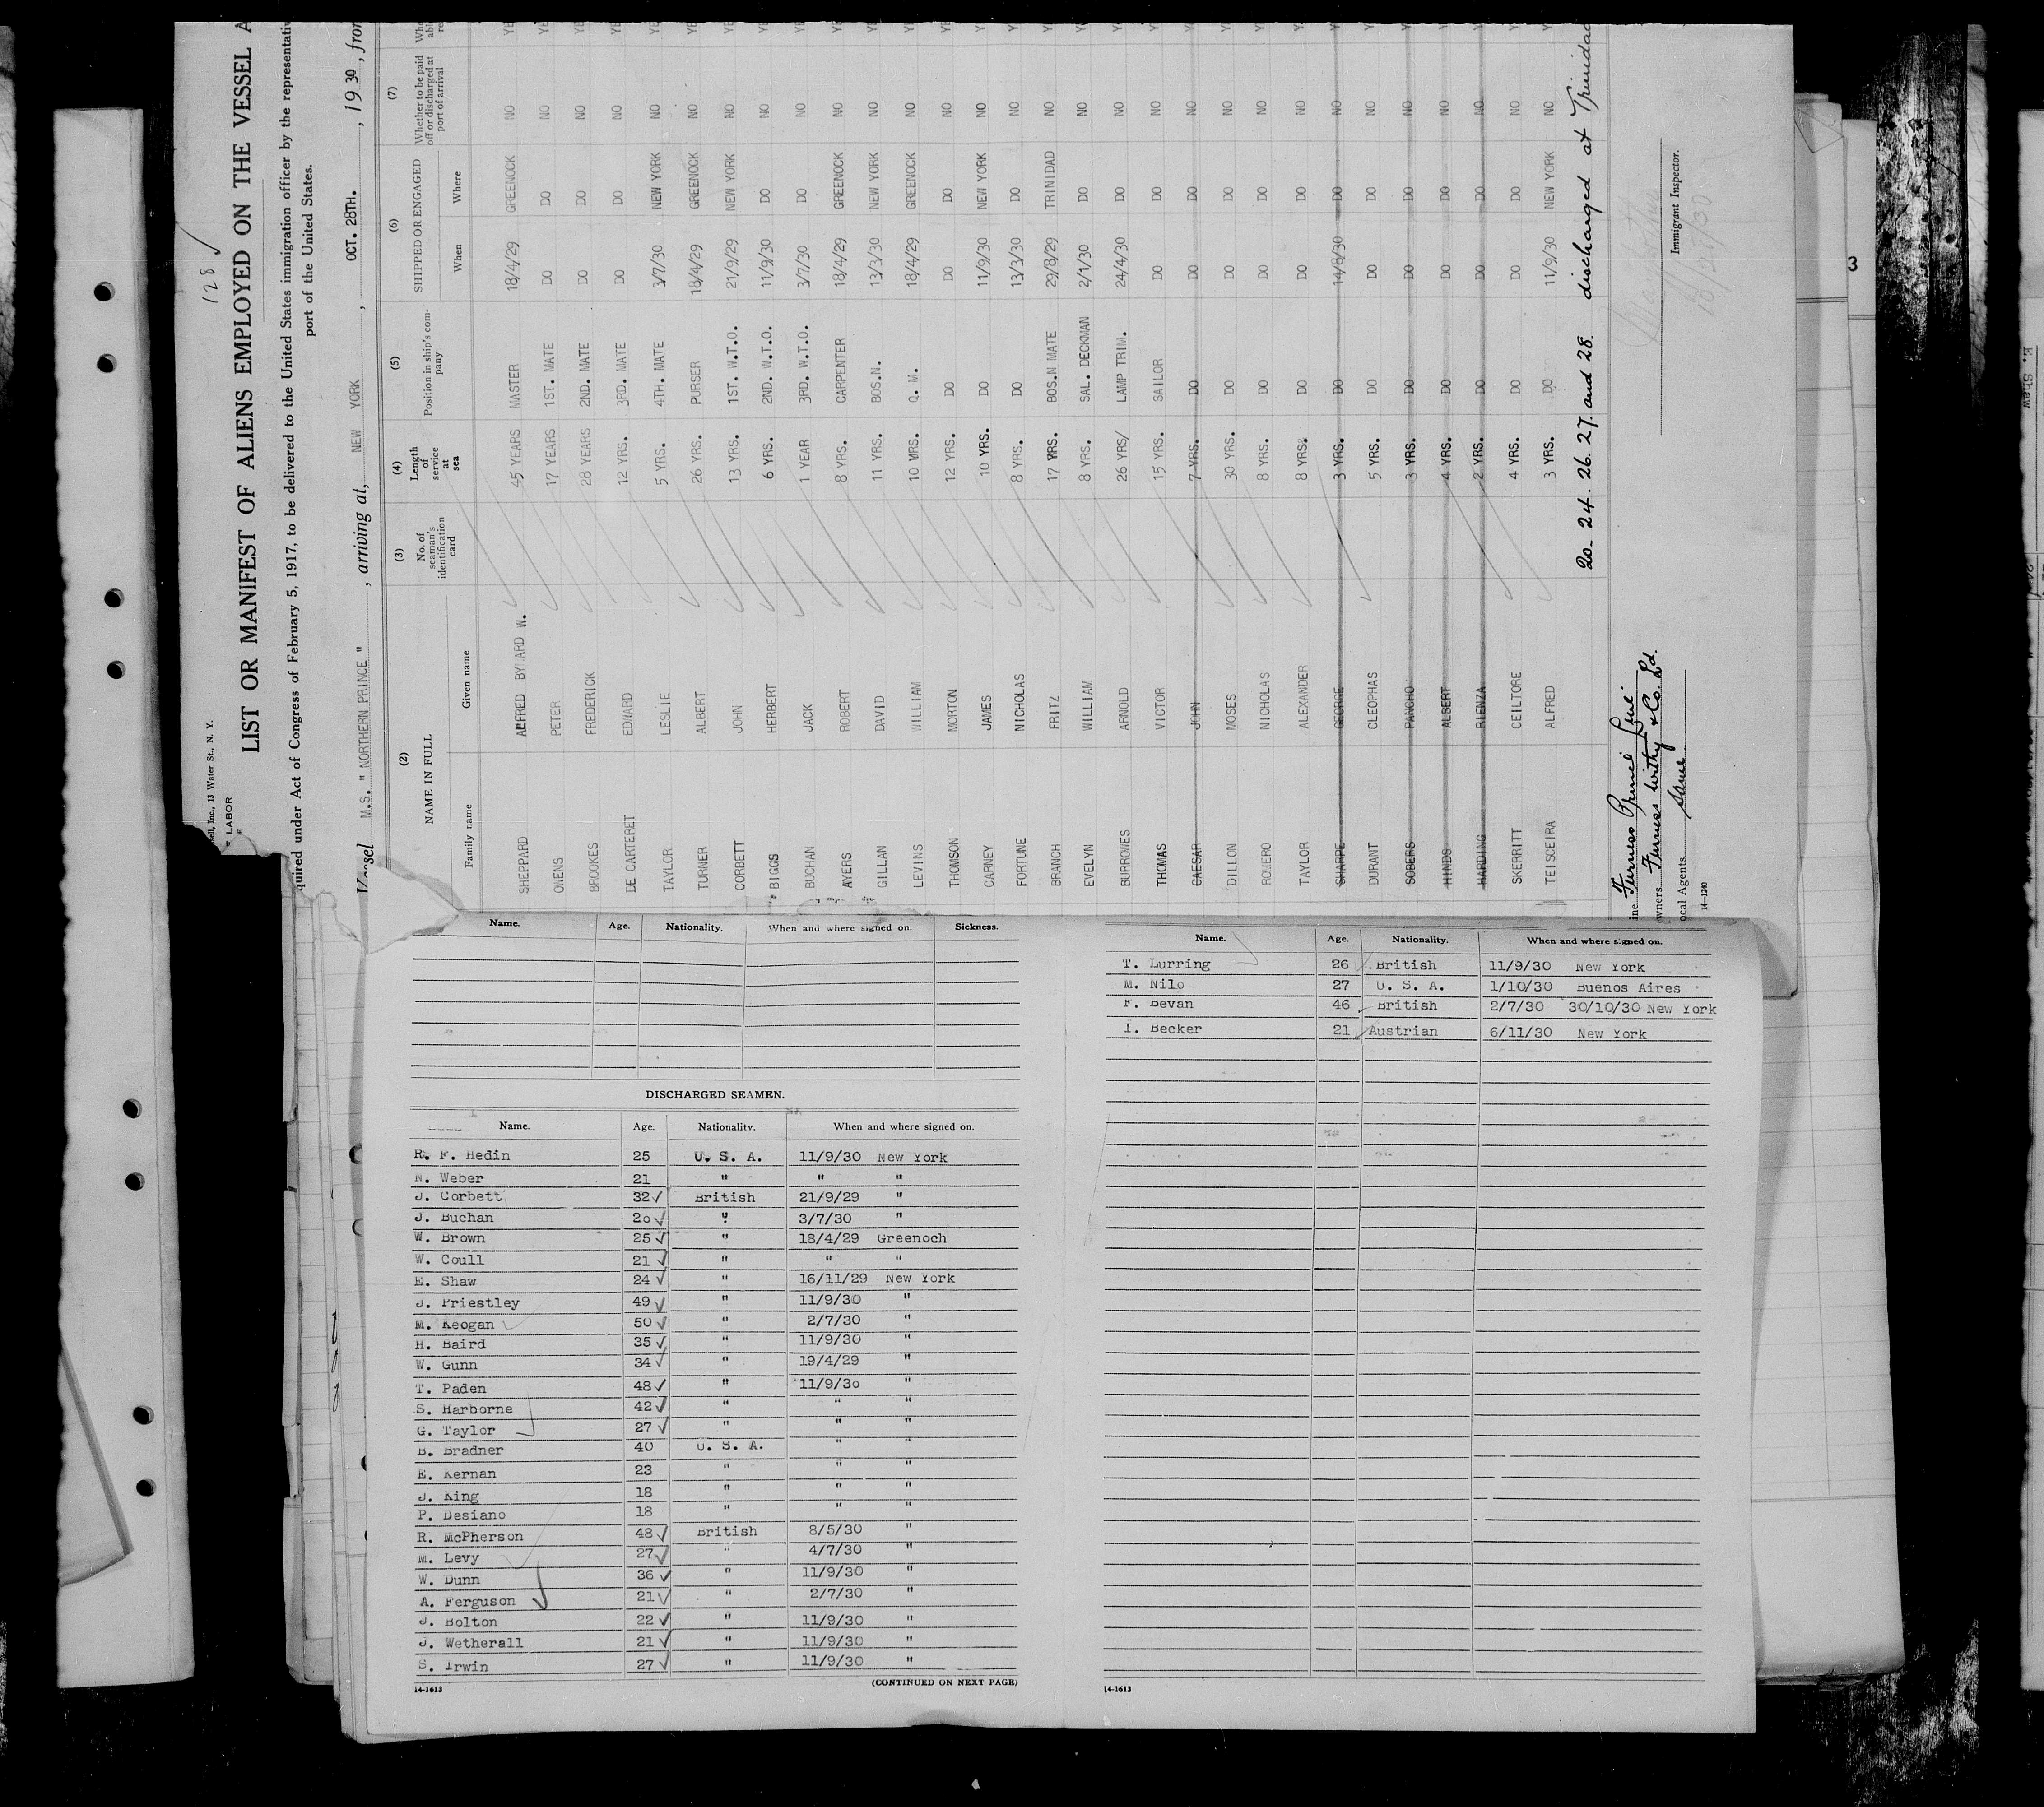 128 ✓
ell, Inc., 13 Water St., N. Y.
LABOR
LIST OR MANIFEST OF ALIENS EMPLOYED ON THE VESSEL A
quired under Act of Congress of February 5, 1917, to be delivered to the United States immigration officer by the representativ
port of the United States.
Vessel M.S. " NORTHERN PRINCE " , arriving at, NEW YORK , OCT. 28TH. , 1930, from
(2) (3) (4) (5) (6) (7)
NAME IN FULL No. of seaman's identification card Length of service at sea Position in ship's company SHIPPED OR ENGAGED Whether to be paid off or discharged at port of arrival
Family name Given name When Where
SHEPPARD ALFRED BYNARD W. 45 YEARS MASTER 18/4/29 GREENOCK NO YE
OWENS PETER 17 YEARS 1ST. MATE DO DO NO YE
BROOKES FREDERICK 28 YEARS 2ND. MATE DO DO NO YE
DE CARTERET EDWARD 12 YRS. 3RD. MATE DO DO NO YE
TAYLOR LESLIE 5 YRS. 4TH. MATE 3/7/30 NEW YORK NO YE
TURNER ALBERT 26 YRS. PURSER 18/4/29 GREENOCK NO YE
CORBETT JOHN 13 YRS. 1ST. W.T.O. 21/9/29 NEW YORK NO YE
BIGGS HERBERT 6 YRS. 2ND. W.T.O. 11/9/30 DO NO YE
BUCHAN JACK 1 YEAR 3RD. W.T.O. 3/7/30 DO NO YE
AYERS ROBERT 8 YRS. CARPENTER 18/4/29 GREENOCK NO YE
GILLAN DAVID 11 YRS. BOS.N. 13/3/30 NEW YORK NO YE
LEVINS WILLIAM 10 YRS. Q. M. 18/4/29 GREENOCK NO YE
THOMSON MORTON 12 YRS. DO DO DO NO YE
CARNEY JAMES 10 YRS. DO 11/9/30 NEW YORK NO YE
FORTUNE NICHOLAS 8 YRS. DO 13/3/30 DO NO YE
BRANCH FRITZ 17 YRS. BOS.N MATE 29/8/29 TRINIDAD NO YE
EVELYN WILLIAM 8 YRS. SAL. DECKMAN 2/1/30 DO NO YE
BURROWES ARNOLD 26 YRS/ LAMP TRIM. 24/4/30 DO NO YE
THOMAS VICTOR 15 YRS. SAILOR DO DO NO YE
CAESAR JOHN 7 YRS. DO DO DO NO YE
DILLON MOSES 30 YRS. DO DO DO NO YE
ROMERO NICHOLAS 8 YRS. DO DO DO NO YE
TAYLOR ALEXANDER 8 YRS. DO DO DO NO YE
SHARPE GEORGE 3 YRS. DO 14/8/30 DO NO YE
DURANT CLEOPHAS 5 YRS. DO DO DO NO YE
SOBERS PANCHO 3 YRS. DO DO DO NO YE
HINDS ALBERT 4 YRS. DO DO DO NO YE
HARDING RIENZA 2 YRS. DO DO DO NO YE
SKERRITT CEILTORE 4 YRS. DO DO DO NO YE
TEISCEIRA ALFRED 3 YRS. DO 11/9/30 NEW YORK NO YE
20. 24. 26. 27. and 28. discharged at Trinidad
ine Furness Prince Line
wners Furness Withy & Co. Ld.
ocal Agents Same
14—1240
10/28/30
Immigrant Inspector.
Name. Age. Nationality. When and where signed on. Sickness.
DISCHARGED SEAMEN.
Name. Age. Nationality. When and where signed on.
R. F. Hedin 25 U. S. A. 11/9/30 New York
N. Weber 21 " " "
J. Corbett 32 ✓ British 21/9/29 "
J. Buchan 20 ✓ " 3/7/30 "
W. Brown 25 ✓ " 18/4/29 Greenoch
W. Coull 21 ✓ " " "
E. Shaw 24 ✓ " 16/11/29 New York
J. Priestley 49 ✓ " 11/9/30 "
M. Keogan 50 ✓ " 2/7/30 "
H. Baird 35 ✓ " 11/9/30 "
W. Gunn 34 ✓ " 19/4/29 "
T. Paden 48 ✓ " 11/9/30 "
S. Harborne 42 ✓ " " "
G. Taylor 27 ✓ " " "
B. Bradner 40 U. S. A. " "
E. Kernan 23 " " "
J. King 18 " " "
P. Desiano 18 " " "
R. McPherson 48 ✓ British 8/5/30 "
M. Levy 27 ✓ " 4/7/30 "
W. Dunn 36 ✓ " 11/9/30 "
A. Ferguson 21 ✓ " 2/7/30 "
J. Bolton 22 ✓ " 11/9/30 "
J. Wetherall 21 ✓ " 11/9/30 "
S. Irwin 27 ✓ " 11/9/30 "
14-1613 (CONTINUED ON NEXT PAGE)
Name. Age. Nationality. When and where signed on.
T. Lurring 26 British 11/9/30 New York
M. Nilo 27 U. S. A. 1/10/30 Buenos Aires
F. Bevan 46 British 2/7/30 30/10/30 New York
I. Becker 21 Austrian 6/11/30 New York
14-1613
3
E. Shaw